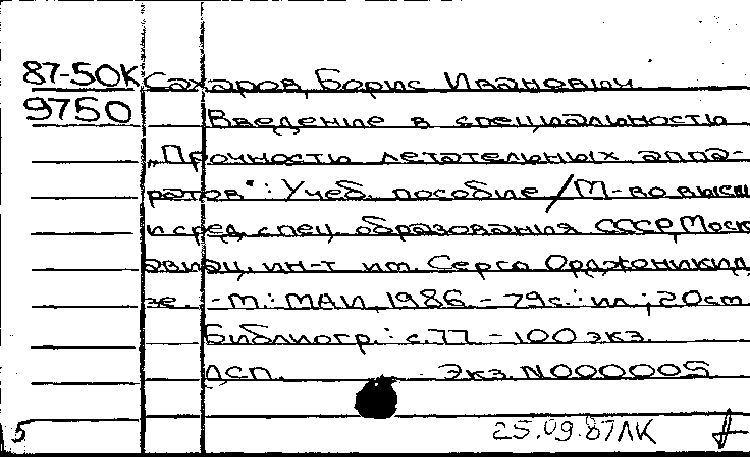 87-50К Сахаров, Борис Иванович.
9750 Введение в специальность
„Прочность летательных аппа-
ратов“: Учеб. пособие / М-во высш.
и сред. спец. образования СССР, Моск.
авиац. ин-т им. Серго Орджоникид-
зе. - М.: МАИ, 1986. - 79с.: ил.; 20см
Библиогр.: с.77. - 100 экз.
ДСП. Экз. N000005
5 25.09.87ЛК